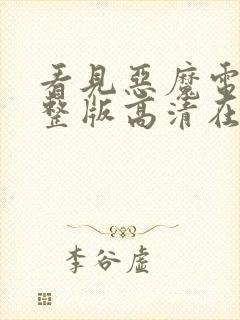 看見惡魔電
整版高清在
李谷虛